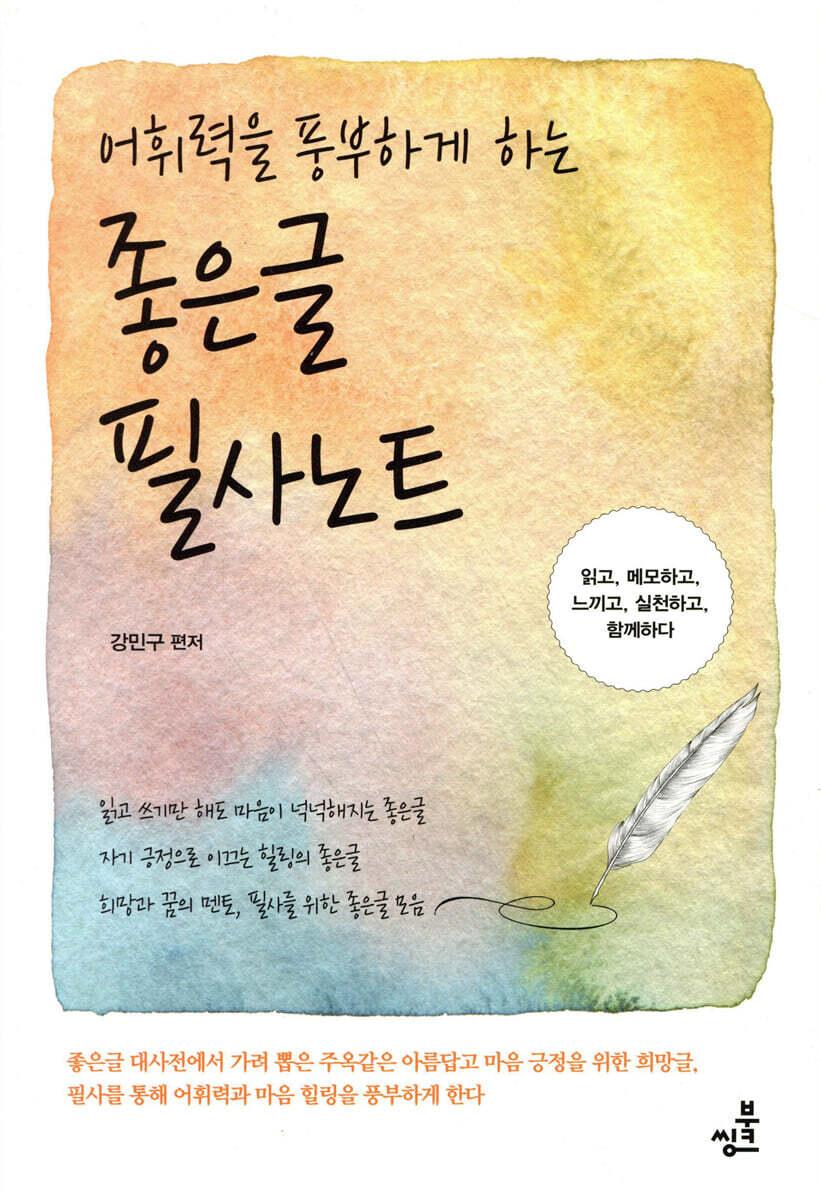 어휘력을 풍부하게 하는
좋은글
필사노트
읽고, 메모하고,
느끼고, 실천하고,
함께하다
강민구 편저
읽고 쓰기만 해도 마음이 넉넉해지는 좋은글
자기 긍정으로 이끄는 힐링의 좋은글
희망과 꿈의 멘토, 필사를 위한 좋은글 모음
좋은글 대사전에서 가려 뽑은 주옥같은 아름답고 마음 긍정을 위한 희망글,
필사를 통해 어휘력과 마음 힐링을 풍부하게 한다
북
씽크